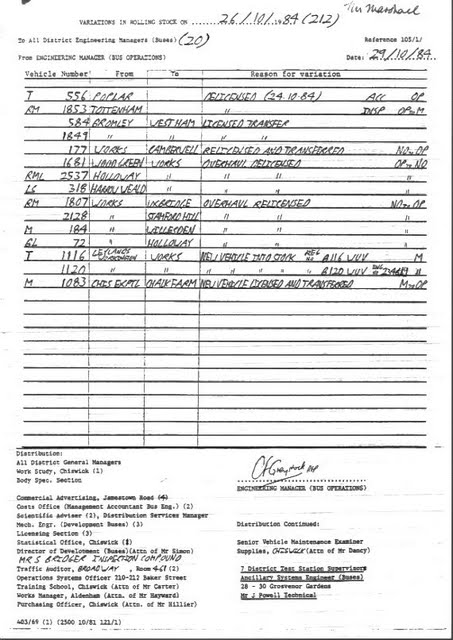 Tim Marshall
VARIATIONS IN ROLLING STOCK ON 26/10/1984 (212)
To All District Engineering Managers (Buses) (20) Reference 105/1/
From ENGINEERING MANAGER (BUS OPERATIONS) Date: 29/10/84
Vehicle Number From To Reason for variation
T 556 POPLAR RELICENSED (24.10.84) ACC OP
RM 1853 TOTTENHAM " INSP OP to M
584 BROMLEY WEST HAM LICENSED TRANSFER
1849 " " " "
177 WORKS CAMBERWELL RELICENSED AND TRANSFERRED NO to OP
1681 WOOD GREEN WORKS OVERHAUL DELICENSED OP to NO
RML 2537 HOLLOWAY " " " "
LS 318 HARROW WEALD " " " "
RM 1807 WORKS UXBRIDGE OVERHAUL RELICENSED NO to OP
2128 " STAMFORD HILL " " "
M 184 " WILLESDEN " " "
BL 72 " HOLLOWAY " " "
T 1116 LEYLANDS WORKINGTON WORKS NEW VEHICLE INTO STOCK REG No A116 WUV M
1120 " " " " " B120 WUV "
M 1083 CHIS EXPTL CHALK FARM NEW VEHICLE LICENSED AND TRANSFERRED M to OP
Distribution:
All District General Managers
Work Study, Chiswick (1)
Body Spec. Section
ENGINEERING MANAGER (BUS OPERATIONS)
Commercial Advertising, Jamestown Road (4)
Costs Office (Management Accountant Bus Eng.) (2)
Scientific Adviser (2), Distribution Services Manager
Mech. Engr. (Development Buses) (3)
Licensing Section (3)
Statistical Office, Chiswick (1)
Director of Development (Buses)(Attn of Mr Simon)
MR S BRIDGER INSPECTION COMPOUND
Traffic Auditor, BROADWAY, Room 461 (2)
Operations Systems Officer 210-212 Baker Street
Training School, Chiswick (Attn of Mr Carter)
Works Manager, Aldenham (Attn of Mr Hayward)
Purchasing Officer, Chiswick (Attn of Mr Hillier)
Distribution Continued:
Senior Vehicle Maintenance Examiner
Supplies, CHISWICK (Attn of Mr Dancy)
7 District Test Station Supervisors
Ancillary Systems Engineer (Buses)
28 - 30 Grosvenor Gardens
Mr J Powell Technical
403/69 (1) (2500 10/81 121/1)